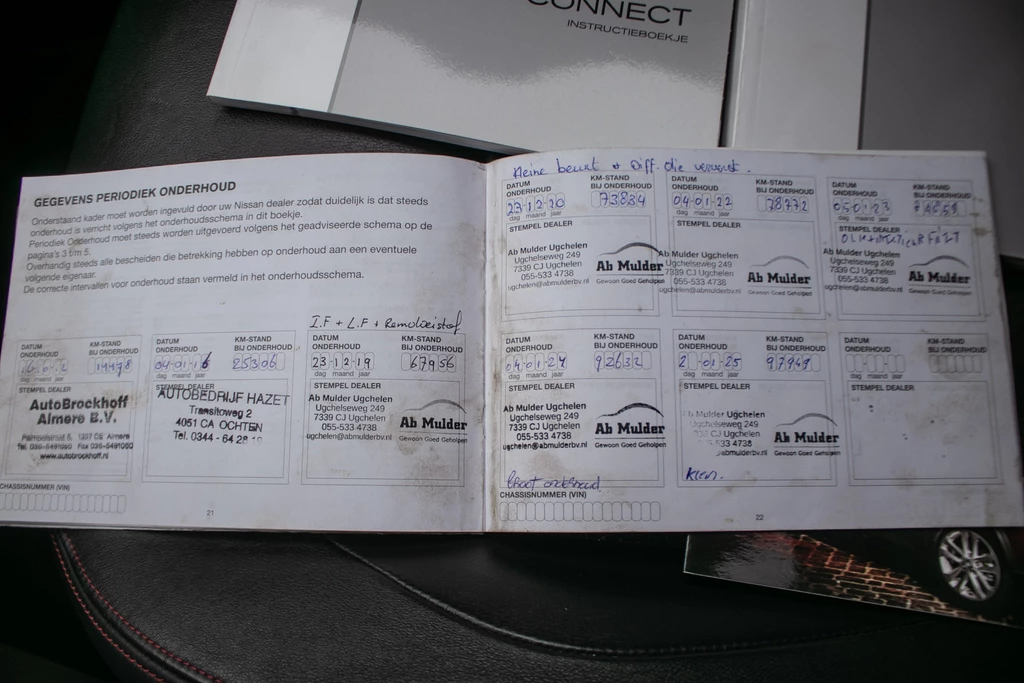 CONNECT
INSTRUCTIEBOEKJE
GEGEVENS PERIODIEK ONDERHOUD
Onderstaand kader moet worden ingevuld door uw Nissan dealer zodat duidelijk is dat steeds
onderhoud is verricht volgens het onderhoudsschema in dit boekje.
Periodiek Onderhoud moet steeds worden uitgevoerd volgens het geadviseerde schema op de
pagina's 3 t/m 5.
Overhandig steeds alle bescheiden die betrekking hebben op onderhoud aan een eventuele
volgende eigenaar.
De correcte intervallen voor onderhoud staan vermeld in het onderhoudsschema.
DATUM ONDERHOUD
KM-STAND BIJ ONDERHOUD
dag maand jaar
STEMPEL DEALER
AutoBrockhoff
Almere B.V.
www.autobrockhoff.nl
DATUM ONDERHOUD
KM-STAND BIJ ONDERHOUD
04-01-16
25306
dag maand jaar
STEMPEL DEALER
AUTOBEDRIJF HAZET
Transitoweg 2
4051 CA OCHTEN
Tel. 0344 - 64 28
I.F + L.F + Remvloeistof
DATUM ONDERHOUD
KM-STAND BIJ ONDERHOUD
23-12-19
67956
dag maand jaar
STEMPEL DEALER
Ab Mulder Ugchelen
Ugchelseweg 249
7339 CJ Ugchelen
055-533 4738
ugchelen@abmulderbv.nl
Ab Mulder
Gewoon Goed Geholpen
CHASSISNUMMER (VIN)
21
Kleine beurt + Diff. olie ververst.
DATUM ONDERHOUD
KM-STAND BIJ ONDERHOUD
23-12-20
73834
dag maand jaar
STEMPEL DEALER
Ab Mulder Ugchelen
Ugchelseweg 249
7339 CJ Ugchelen
055-533 4738
ugchelen@abmulderbv.nl
Ab Mulder
Gewoon Goed Geholpen
DATUM ONDERHOUD
KM-STAND BIJ ONDERHOUD
04-01-22
78772
dag maand jaar
STEMPEL DEALER
Ab Mulder Ugchelen
Ugchelseweg 249
7339 CJ Ugchelen
055-533 4738
ugchelen@abmulderbv.nl
Ab Mulder
Gewoon Goed Geholpen
DATUM ONDERHOUD
KM-STAND BIJ ONDERHOUD
05-01-23
dag maand jaar
STEMPEL DEALER
Ab Mulder Ugchelen
Ugchelseweg 249
7339 CJ Ugchelen
055-533 4738
ugchelen@abmulderbv.nl
Ab Mulder
Gewoon Goed Geholpen
DATUM ONDERHOUD
KM-STAND BIJ ONDERHOUD
04-01-24
92632
dag maand jaar
STEMPEL DEALER
Ab Mulder Ugchelen
Ugchelseweg 249
7339 CJ Ugchelen
055-533 4738
ugchelen@abmulderbv.nl
Ab Mulder
Gewoon Goed Geholpen
Groot onderhoud
DATUM ONDERHOUD
KM-STAND BIJ ONDERHOUD
2-01-25
97949
dag maand jaar
STEMPEL DEALER
Mulder Ugchelen
249
CJ Ugchelen
533 4738
abmulderbv.nl
Ab Mulder
Gewoon Goed Geholpen
Klein.
DATUM ONDERHOUD
KM-STAND BIJ ONDERHOUD
dag maand jaar
STEMPEL DEALER
CHASSISNUMMER (VIN)
22